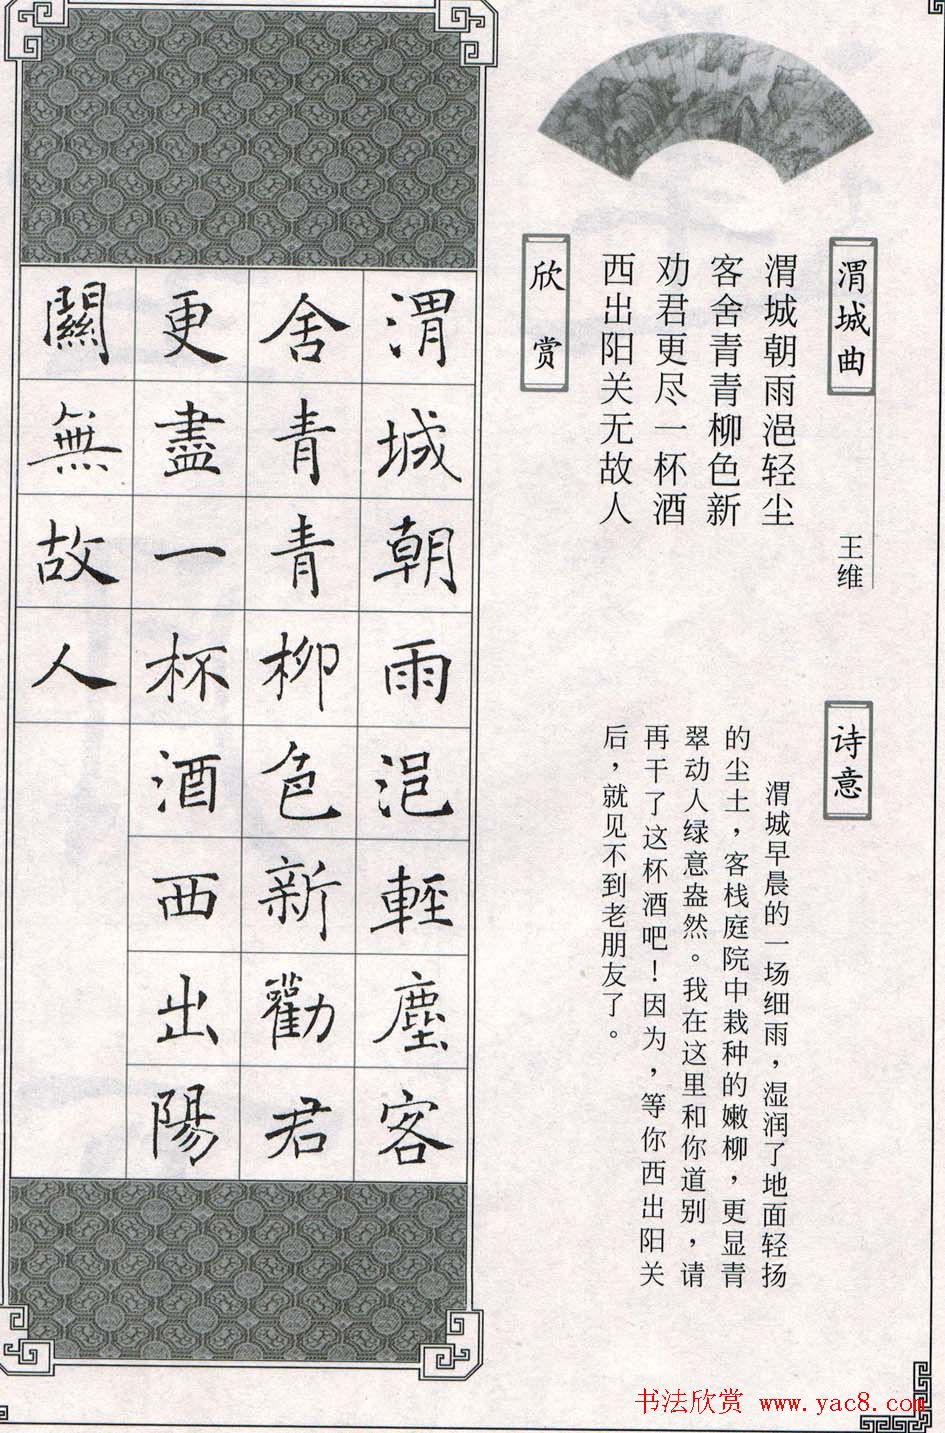 渭城曲
王维
渭城朝雨浥轻尘
客舍青青柳色新
劝君更尽一杯酒
西出阳关无故人
诗意
渭城早晨的一场细雨，湿润了地面轻扬
的尘土，客栈庭院中栽种的嫩柳，更显青
翠动人绿意盎然。我在这里和你道别，请
再干了这杯酒吧！因为，等你西出阳关
后，就见不到老朋友了。
欣赏
渭城朝雨浥輕塵客
舍青青柳色新勸君
更盡一杯酒西出陽
關無故人
书法欣赏 www.yac8.com